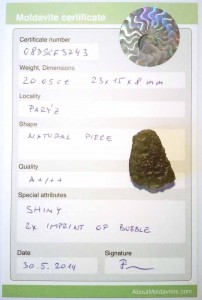 Moldavite certificate
Certificate number
Weight, Dimensions
20.05ct 23x15x8 mm
Locality
Shape
NATURAL PIECE
Quality
A++++
Special attributes
SHINY
2x IMPRINT OF BUBBLE
Date
Signature
30.5.2014
AboutMoldavites.com